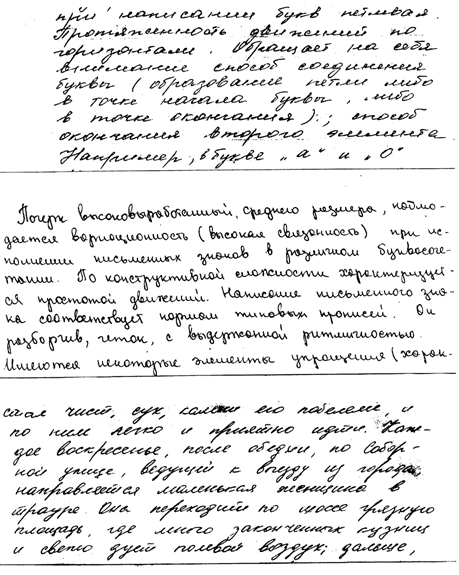 при написании букв петлевая.
Протяженность движений по
горизонтали. Обращает на себя
внимание способ соединения
буквы (образование петли либо
в точке начала буквы, либо
в точке окончания); способ
окончания второго элемента
Например, в букве „а" и „О"
Почерк высоковыработанный, среднего размера, наблю-
дается вариационность (высокая связанность) при ис-
полнении письменных знаков в различном буквосоче-
тании. По конструктивной сложности характеризует-
ся простотой движений. Написание письменного зна-
ка соответствует нормам типовых прописей. Он
разборчив, четок, с выдержанной ритмичностью.
Имеются некоторые элементы упрощения (харак-
стал чист, сух, камни его побелели, и
по ним легко и приятно идти. Каж-
дое воскресенье, после обедни, по Собор-
ной улице, ведущей к выезду из города
направляется маленькая женщина в
трауре. Она переходит по шоссе грязную
площадь, где много законченных кузниц
и свежо дует полевой воздух; дальше,